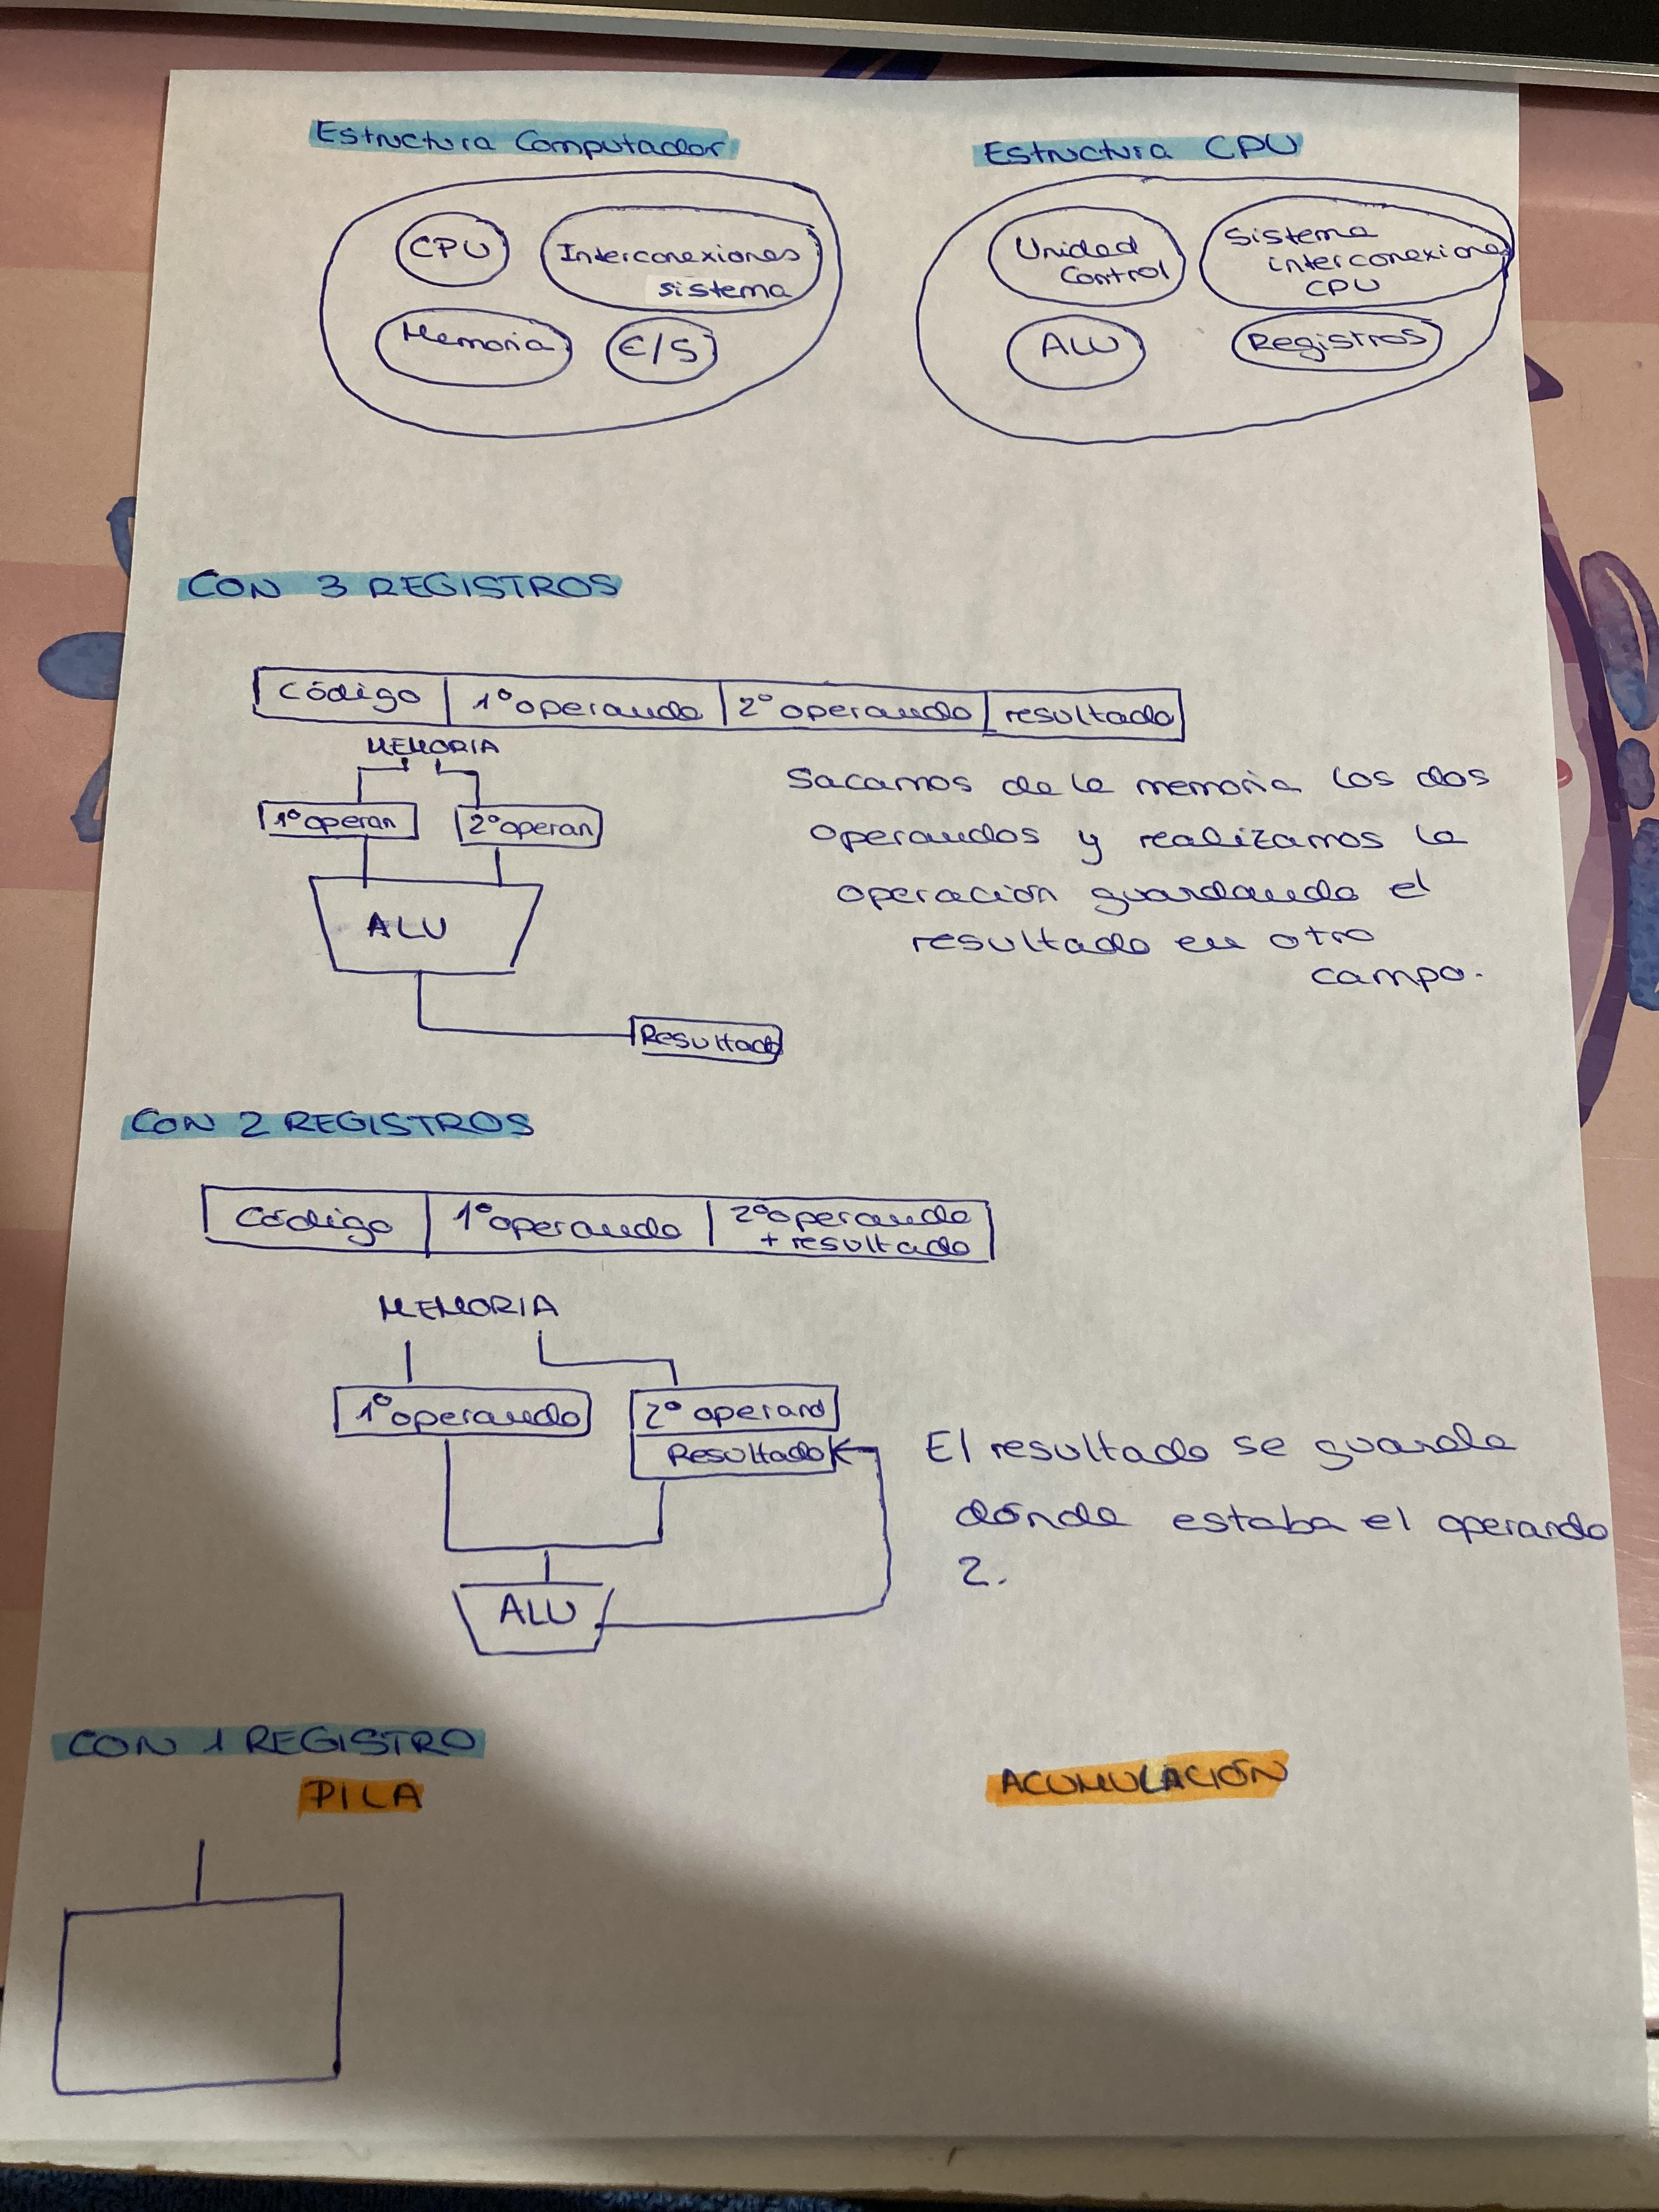 Estructura Computador
CPU
Interconexiones
sistema
Memoria
E/S
Estructura CPU
Unidad
Control
Sistema
interconexiones
CPU
ALU
Registros
CON 3 REGISTROS
Código 1º operando 2º operando resultado
MEMORIA
1º operan 2º operan
ALU
Resultado
Sacamos de la memoria los dos
operandos y realizamos la
operación guardando el
resultado en otro
campo.
CON 2 REGISTROS
Código 1º operando 2º operando
+ resultado
MEMORIA
1º operando 2º operand
Resultado
ALU
El resultado se guarda
dónde estaba el operando
2.
CON 1 REGISTRO
PILA
ACUMULACIÓN